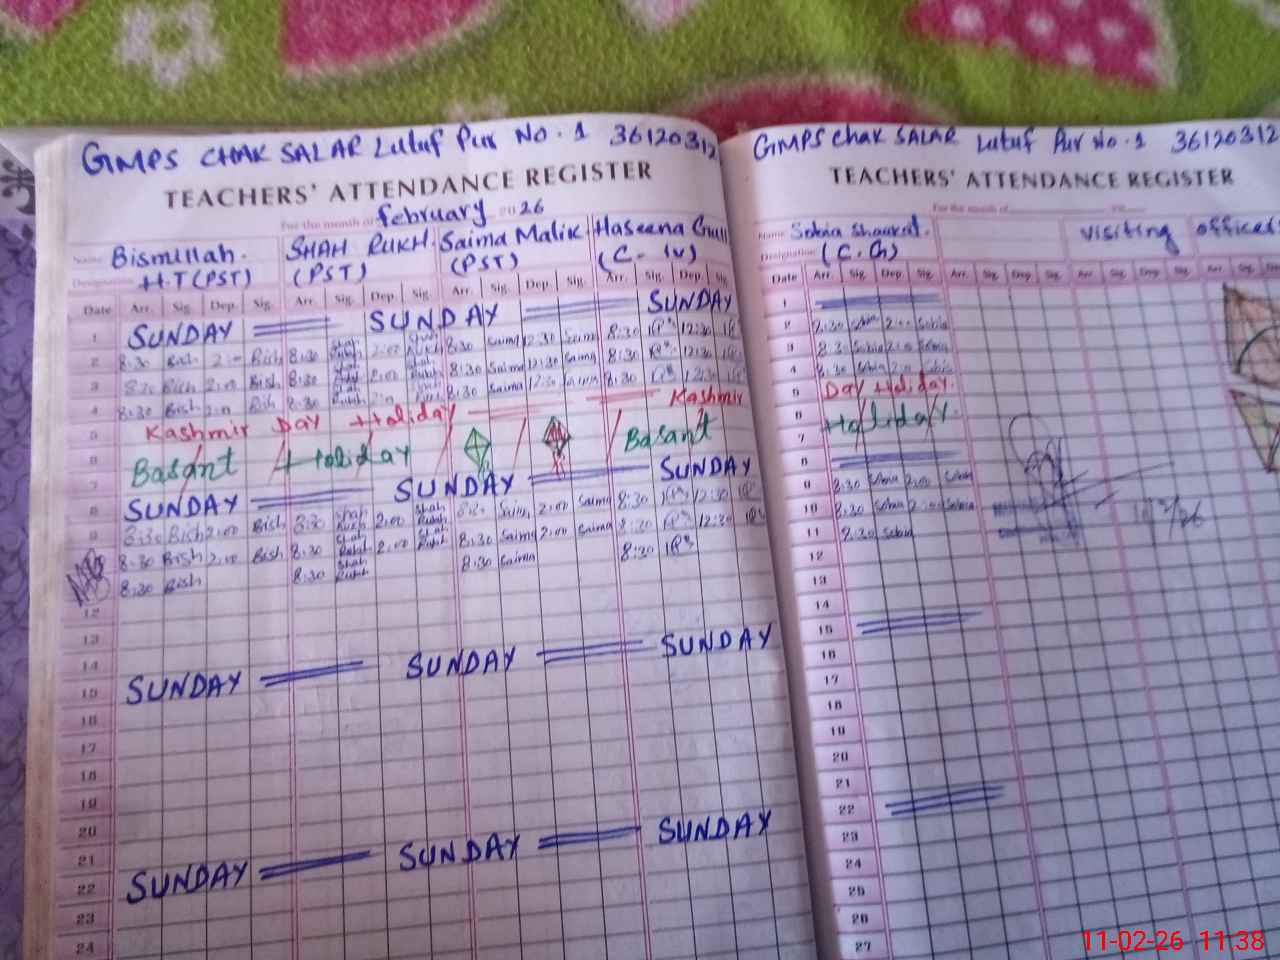 GMPS CHAK SALAR Lutuf Pur No. 1 36120312
TEACHERS' ATTENDANCE REGISTER
For the month of february 2026
Name Bismillah. SHAH RUKH. Saima Malik Haseena
Designation H.T (PST) (PST) (PST) (C. IV)
Date Arr. Sig. Dep. Sig. Arr. Sig. Dep. Sig. Arr. Sig. Dep. Sig. Arr. Sig. Dep. Sig.
1 SUNDAY SUNDAY SUNDAY
2 8:30 Bish 2:00 Bish 8:30 Shah Rukh 2:00 Shah Rukh 8:30 Saima 12:30 Saima 8:30 12:30
3 8:30 Bish 2:00 Bish 8:30 Shah Rukh 2:00 Shah Rukh 8:30 Saima 12:30 Saima 8:30 12:30
4 8:30 Bish 2:00 Bish 8:30 Shah Rukh 2:00 8:30 Saima 12:30 Saima 8:30 12:30
5 Kashmir Day Holiday Kashmir
6 Basant Holiday Basant
7
8 SUNDAY SUNDAY SUNDAY
9 8:30 Bish 2:00 Bish 8:30 Shah Rukh 2:00 Shah Rukh 8:30 Saima 2:00 Saima 8:30 12:30
8:30 Bish 2:00 Bish 8:30 Shah Rukh 2:00 Shah Rukh 8:30 Saima 2:00 Saima 8:30 12:30
8:30 Bish 8:30 Shah Rukh 8:30 Saima 8:30
12
13
14
15 SUNDAY SUNDAY SUNDAY
16
17
18
19
20
21
22 SUNDAY SUNDAY SUNDAY
23
24
GMPS Chak SALAR Lutuf Pur No. 1 36120312
TEACHERS' ATTENDANCE REGISTER
For the month of
Name Sobia Shaukat. visiting officer
Designation (C. G)
Date Arr. Sig. Dep. Sig. Arr. Sig. Dep. Sig. Arr. Sig. Dep. Sig. Arr. Sig.
1
2 8:30 Sobia 2:00 Sobia
3 8:30 Sobia 2:00 Sobia
4 8:30 Sobia 2:00 Sobia
5 Day Holiday.
6 Holiday.
7
8
9 8:30 Sobia 2:00 Sobia
10 8:30 Sobia 2:00 Sobia
11 8:30 Sobia
12
13
14
15
16
17
18
19
20
21
22
23
24
25
26
27
11-02-26 11:38